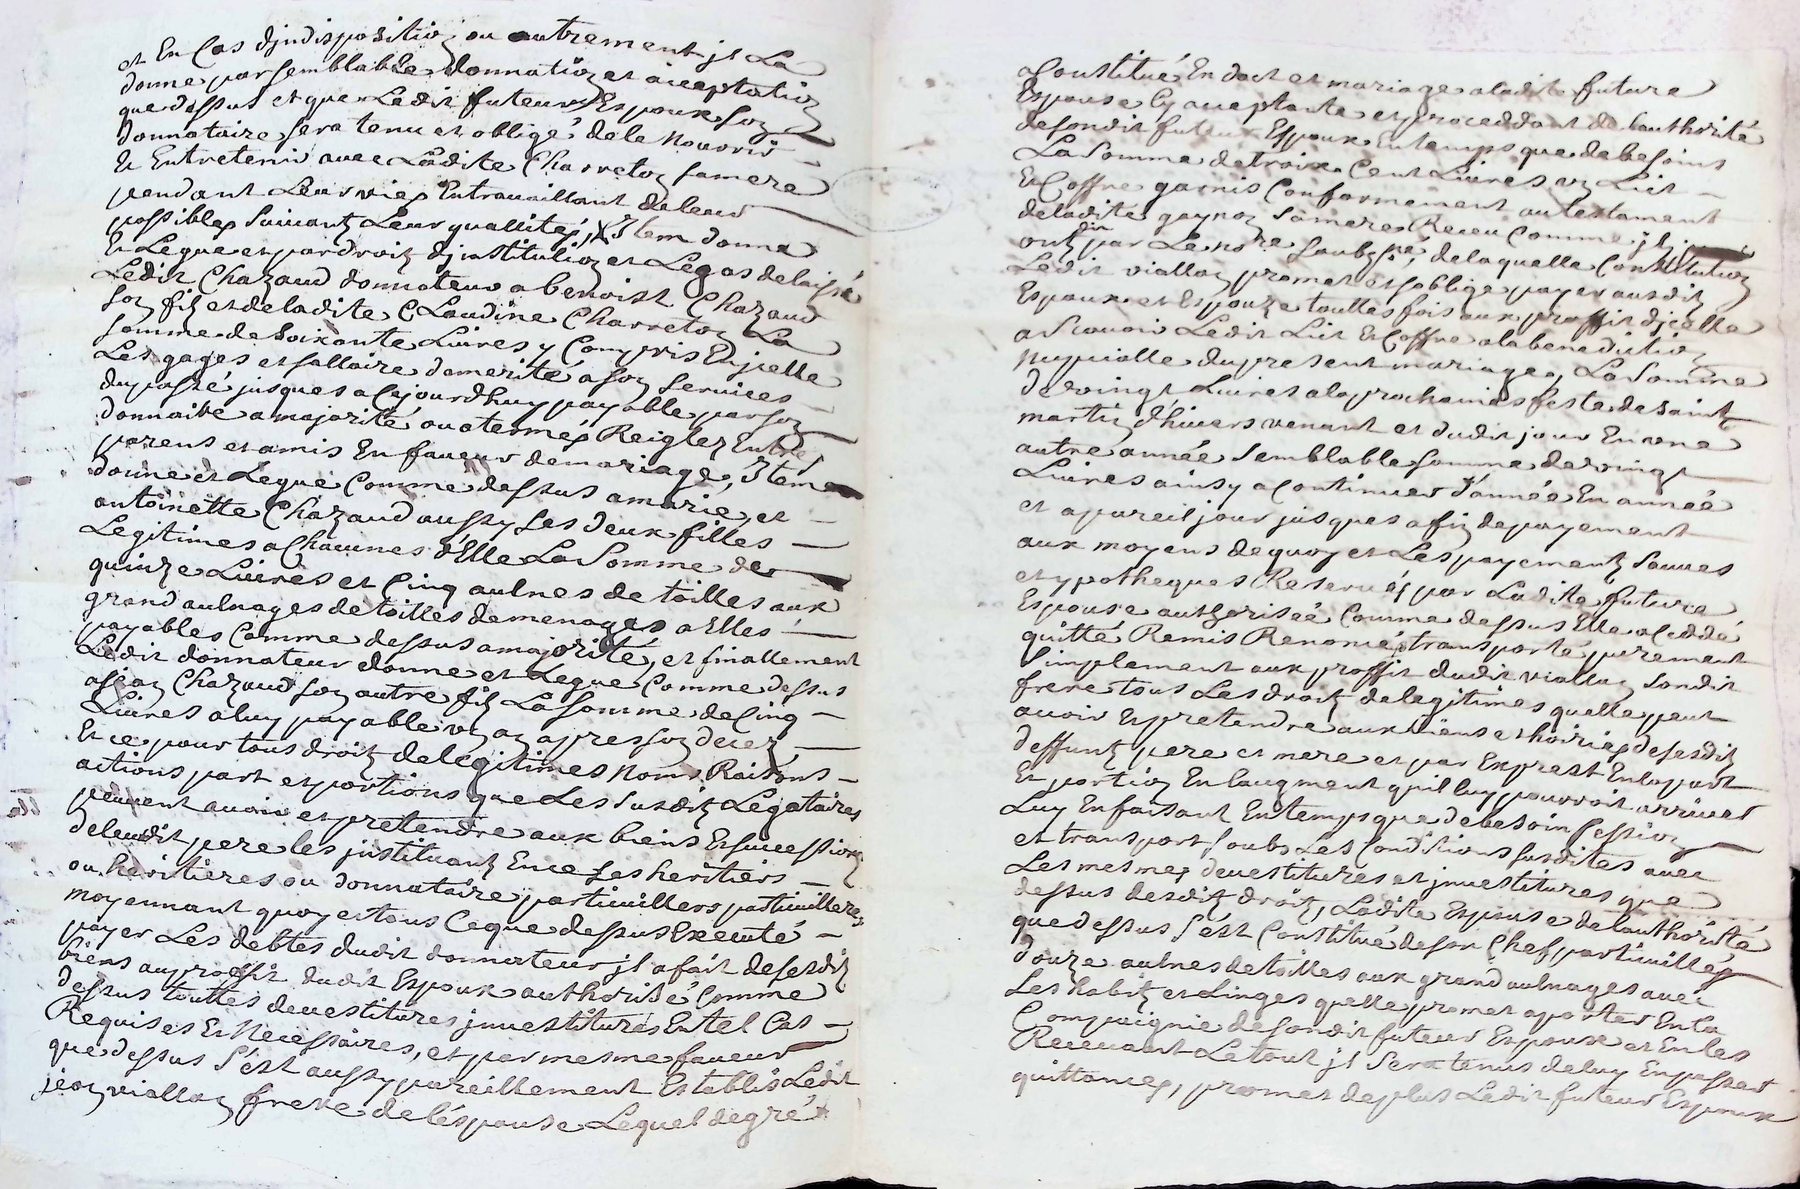 et En Cas djndisposition ou autrement jl La
donne par semblable donnation et acceptation
que dessus et que Ledit futeur Espoux son
donnataire sera tenu et obligé de le nourrir
Et Entretenir avec Ladite Charreton sa mere
pendant Leur vie, Entravaillant de leur
possibles suivant Leur quallités, Item donne
Et Legue et par droit djnstitution et Legas delaissé
Ledit Chazaud donnateur a benoist Chazaud
son fils et de ladite CLaudine Charreton La
somme de soixante Livres y Compris En jcelle
Les gages et sallaire damerité a son services
du passé jusques a Cejourdhuy payable par son
donnaire a majorité ou a termes Reiglez Entre
parens et amis En faveur de mariage, Item
donne et Legue Comme dessus a marie et
antoinette Chazaud aussy ses deux filles
Legitimes a Chacunes d'Elle La Somme de
quinze Livres et Cinq aulnes de toilles aux
grand aulnages de toilles de menages a Elles
payables Comme dessus a majorité, et finallement
Ledit donnateur donne et Legue Comme dessus
a jean Chazaud son autre fils La somme de Cinq
Livres a luy payable un an apres son decez
Et ce pour tous droitz de legitimes noms Raisons
actions part et portions que Les susditz Legataires
peuvent avoir et pretendre aux biens Et succession
de leurdit pere les justituant En ce ses heritiers
ou heritieres ou donnataire particulliers particullieres
moyennant quoy et tous Ceque dessus Executé
payer Les debtes dudit donnateur jl a fait desesditz
biens au proffit dudit Espoux authorisé Comme
dessus touttes devestitures jnvestitures En tel Cas
Requises Et Necessaires, et par mesme faveur
que dessus s'est aussy pareillement Establis Ledit
jean viallon frere de l'espouse Lequel de gré
a Constitué En doct et mariage a ladite future
Espouse Cy acceptante et proceddant de l'authorité
de sondit futeur Espoux En temps que de besoins
La Somme de trois Cent Livres un Lict
Et Coffre garnis Conformement au testament
de ladite gaynon sa mere Receu Comme jls
ont dit par Le nore soubzsné, de laquelle Constitution
Ledit viallon promet et s'oblige payer ausditz
Espoux et Espouze touttes fois aux proffit djcelle
a Scavoir Ledit Lict Et Coffre a la benediction
nuptialle du present mariage, La Somme
de vingt Livres a la prochaines feste de saint
martin d'hivers venant et dudit jour En une
autre année semblable somme de vingt
Livres ainsy a Continuer d'année En année
et a pareil jour jusques a fin de payement
aux moyens de quoy et Les payementz sauves
et ypotheques Reservés par Ladite future
Espouse authorisée Comme dessus Elle a Ceddé
quitté Remis Renoncé, transporté purement
simplement aux proffit dudit viallon sondit
frere tous Les droitz de legitimes quelle peut
avoir Et pretendre aux biens et hoiries de sesditz
deffuntz pere et mere et par Exprest En la part
Et portion En laugment quil luy pourroit arriver
Luy En faisant En temps que de besoin Cession
et transport soubz Les Conditions susdites avec
Les mesmes devestitures et jnvestitures que
dessus desditz droitz, Ladite Espouse de l'authorité
que dessus s'est Constitué de son Chef particulliés
douze aulnes de toilles aux grand aulnages avec
Les habitz et Linges quelle promet aporter En la
Compaignie de sondit futeur Espoux et En les
Recevant Le tout jl sera tenus de luy En passer
quittances, promet de plus Ledit futeur Espoux